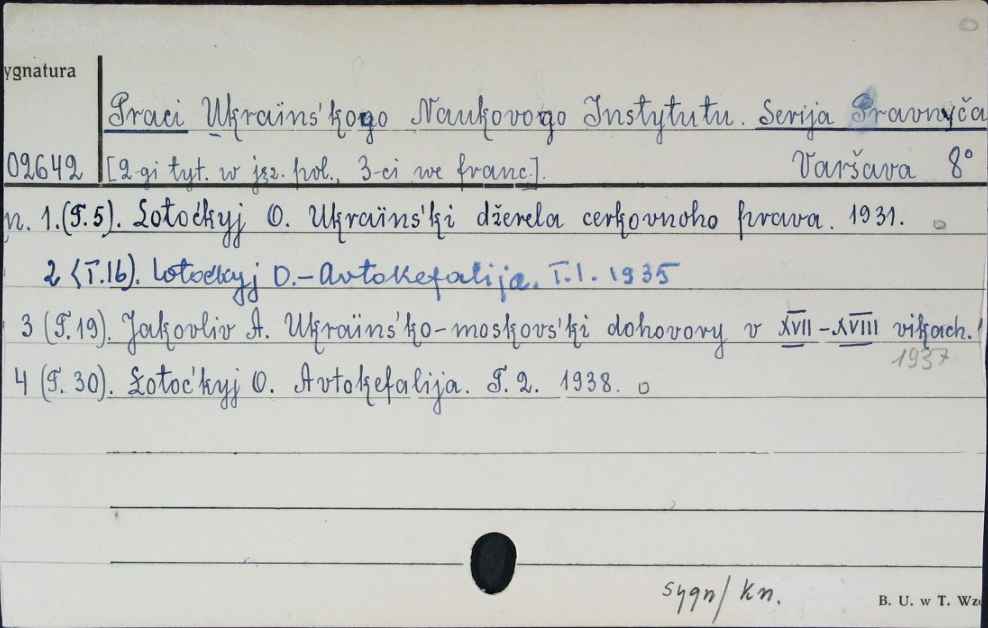 ygnatura
Praci Ukraïns'kogo Naukovogo Instytutu. Serija Pravnyča
02642 [2-gi tyt. w jęz. pol., 3-ci we franc.]. Varšava 8°
n. 1. (T. 5). Łotoćkyj O. Ukraïns'ki džerela cerkovnoho prava. 1931.
2 (T. 16). Łotoćkyj O. - Avtokefalija. T. 1. 1935
3 (T. 19). Jakovliv A. Ukraïns'ko-moskovs'ki dohovory v XVII-XVIII vikach.
1937
4 (T. 30). Łotoc'kyj O. Avtokefalija. T. 2. 1938.
sygn/kn.
B. U. w T. Wz